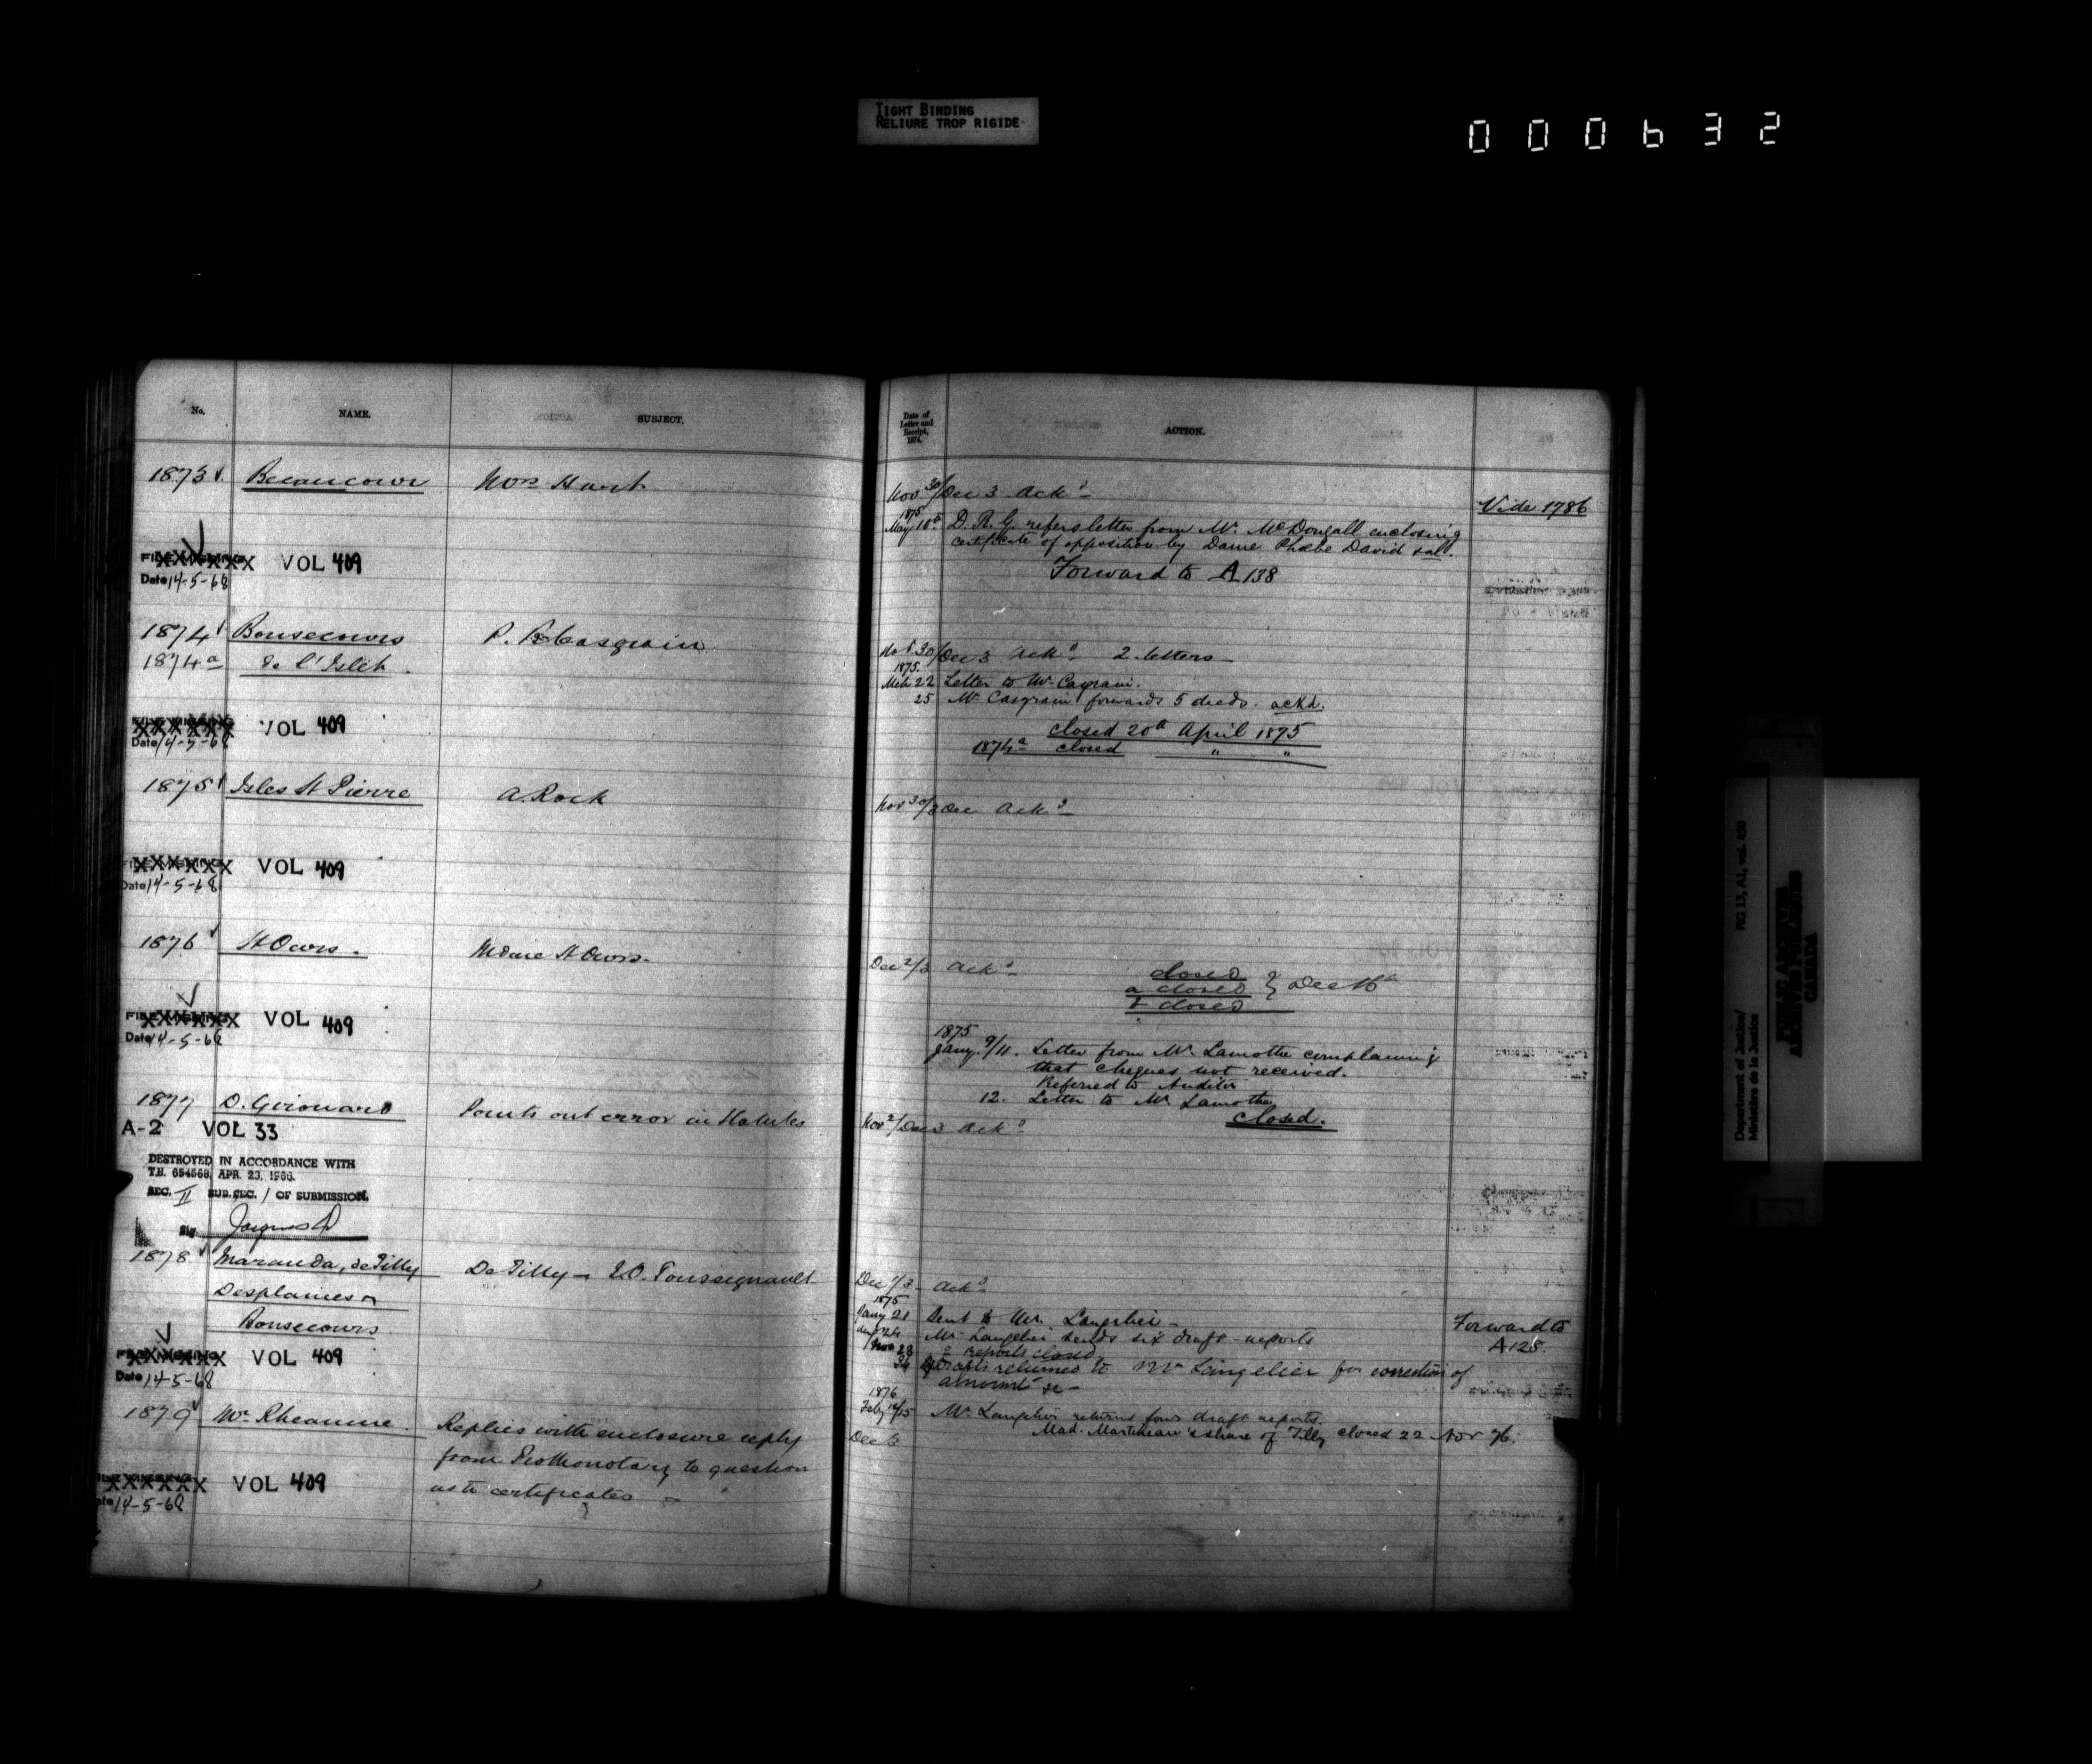 TIGHT BINDING
RELIURE TROP RIGIDE
000632
No.
NAME.
SUBJECT.
1873 Becancour Mrs Hart
FILE MISSING XXXXXXX VOL 409
Date 14-5-68
1874 Bonsecours P. B. Casgrain
1874a de l'Islet.
FILE MISSING XXXXXX VOL 409
Date 14-5-68
1875 Isles St Pierre A. Rock
FILE MISSING XXXXXX VOL 409
Date 14-5-68
1876 St Ours. Mdme St Ours.
FILE MISSING XXXXXX VOL 409
Date 14-5-68
1877 D. Girouard Points out error in Statutes
A-2 VOL 33
DESTROYED IN ACCORDANCE WITH
T.B. 654568, APR. 23, 1966.
SEC. II SUB. SEC. / OF SUBMISSION.
Sig.
1878 Maranda, de Tilly De Tilly - Toussignault
Desplaines
Bonsecours
FILE MISSING XXXXXX VOL 409
Date 14-5-68
1879 Mr Rheaume. Replies with enclosure reply
from Prothonotary to question
as to certificates
FILE MISSING XXXXXX VOL 409
Date 14-5-68
Date of
Letter and
Receipt,
1874.
ACTION.
Nov 30/Dec 3 Ackd Vide 1786
1875
May 18th D.R.G. refers letter from Mr. McDougall enclosing
certificate of opposition by Dame Phœbe David
Forward to A 138
Nov 30/Dec 3 Ackd 2 letters
1875.
Mch 22 Letter to Mr Casgrain.
25 Mr Casgrain forwards 5 deeds. ackd.
closed 20th April 1875
1874a closed " "
Nov 30/3 Dec Ackd
Dec 2/3 Ackd closed
a closed } Dec 16th
b closed
1875
Jany. 9/11. Letter from Mr. Lamothe complaining
that cheques not received.
Referred to Auditor
12. Letter to Mr Lamothe
closed.
Nov 2/Dec 3 Ackd
Dec 1/3 Ackd
1875
Jany 21 Sent to Mr. Langelier Forward to
24 Mr. Langelier sends six draft-reports A 128.
Nov 23 2 reports closed
24 Drafts returned to Mr Langelier for correction of
amount &c
1876
Feby 14/15 Mr. Langelier returns four draft reports.
Mad. Martineau's share of Tilly closed 22 Nov 76.
Dec 3
Department of Justice/
Ministère de la Justice
RG 13, A1, vol. 430
PUBLIC ARCHIVES
ARCHIVES PUBLIQUES
CANADA